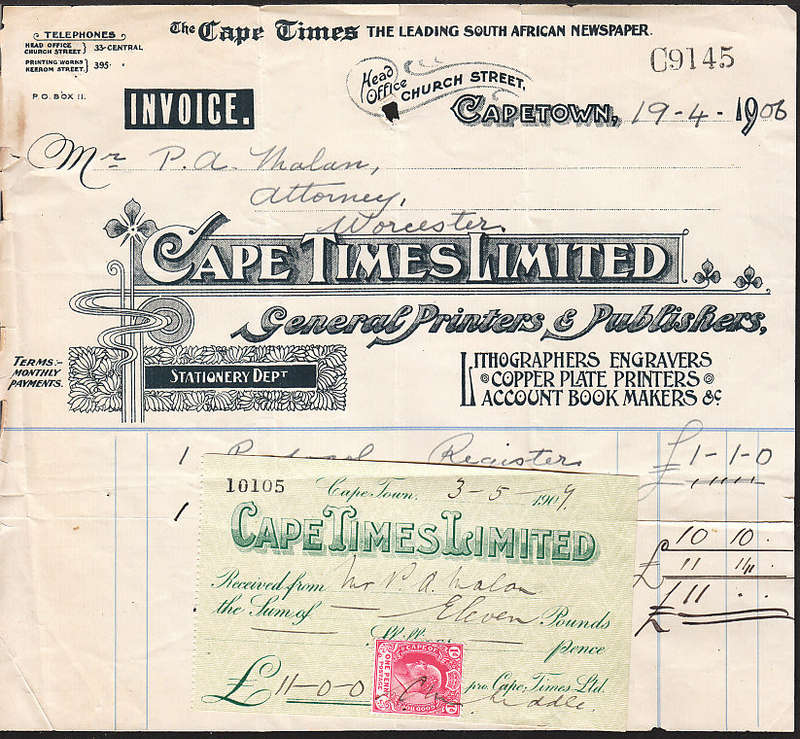 The Cape Times THE LEADING SOUTH AFRICAN NEWSPAPER.
TELEPHONES
HEAD OFFICE CHURCH STREET} 33-CENTRAL
PRINTING WORKS KEEROM STREET.} 395.
P.O. BOX 11.
C9145
INVOICE.
Head Office CHURCH STREET,
CAPETOWN, 19-4-1906
Mr P. A. Malan,
Attorney,
Worcester.
CAPE TIMES LIMITED
General Printers & Publishers,
TERMS:-
MONTHLY
PAYMENTS.
STATIONERY DEPT
LITHOGRAPHERS ENGRAVERS
COPPER PLATE PRINTERS
ACCOUNT BOOK MAKERS &c
1 Register £1-1-0
1
10 10 .
£ 11 11 .
£ 11 . .
10105 Cape Town. 3-5-1909.
CAPE TIMES LIMITED
Received from Mr P. A. Malan
the Sum of — Eleven Pounds
pence
£11-0-0 pro. Cape Times Ltd.
CAPE OF
ONE PENNY
POSTAGE
1D